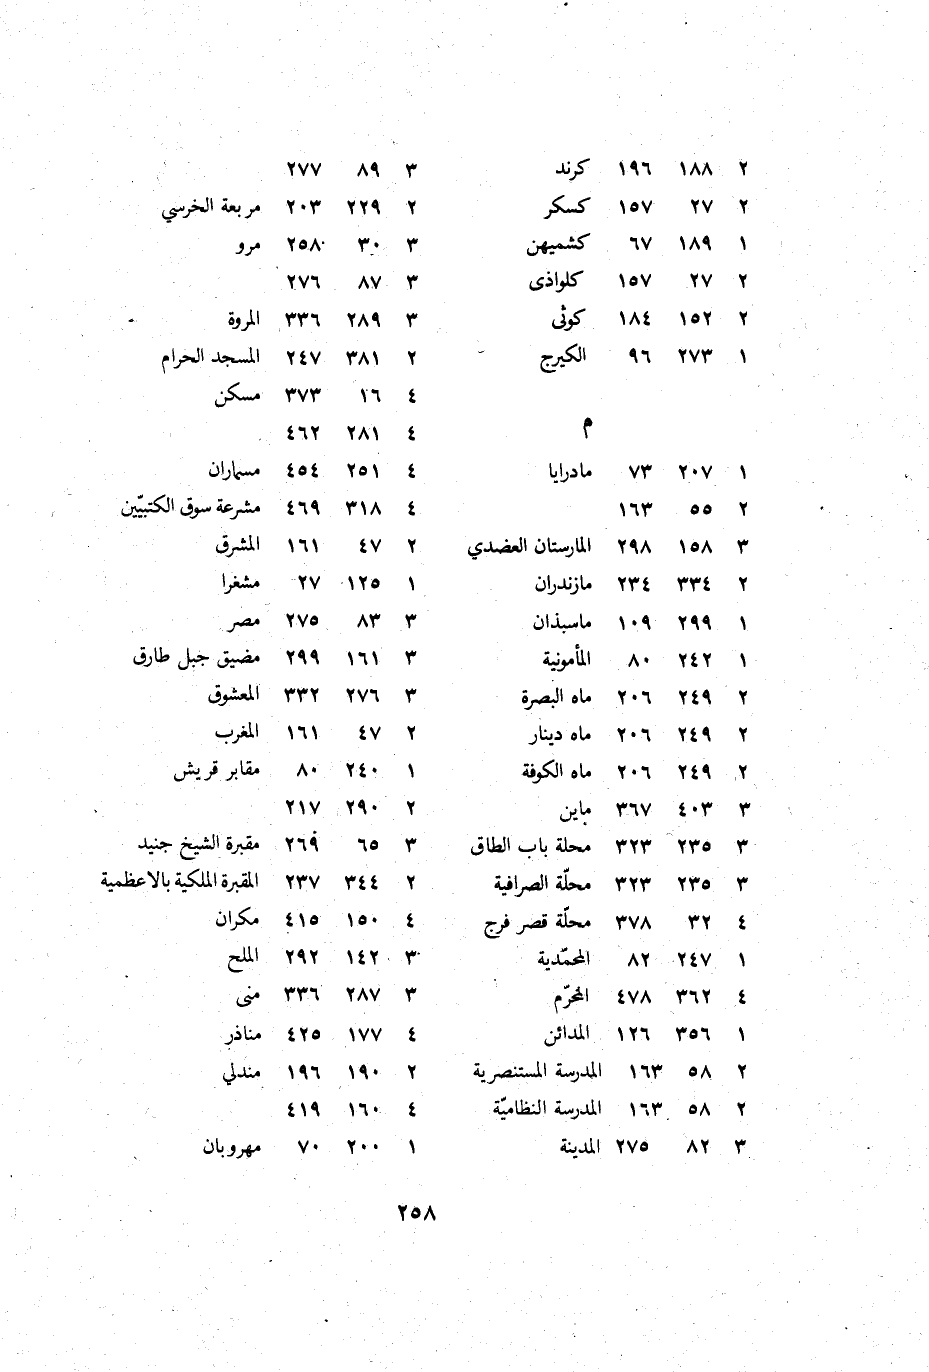 ٢ ١٨٨ ١٩٦ كرند
٢ ٢٧ ١٥٧ كسكر
١ ١٨٩ ٦٧ كشميهن
٢ ٢٧ ١٥٧ كلواذى
٢ ١٥٢ ١٨٤ كوثى
١ ٢٧٣ ٩٦ الكيرج
م
١ ٢٠٧ ٧٣ مادرايا
٢ ٥٥ ١٦٣
٣ ١٥٨ ٢٩٨ المارستان العضدي
٢ ٣٣٤ ٢٣٤ مازندران
١ ٢٩٩ ١٠٩ ماسبذان
١ ٢٤٢ ٨٠ المأمونية
٢ ٢٤٩ ٢٠٦ ماه البصرة
٢ ٢٤٩ ٢٠٦ ماه دينار
٢ ٢٤٩ ٢٠٦ ماه الكوفة
٣ ٤٠٣ ٣٦٧ ماين
٣ ٢٣٥ ٣٢٣ محلة باب الطاق
٣ ٢٣٥ ٣٢٣ محلّة الصرافية
٤ ٣٢ ٣٧٨ محلّة قصر فرج
١ ٢٤٧ ٨٢ المحمّدية
٤ ٣٦٢ ٤٧٨ المخرّم
١ ٣٥٦ ١٢٦ المدائن
٢ ٥٨ ١٦٣ المدرسة المستنصرية
٢ ٥٨ ١٦٣ المدرسة النظاميّة
٣ ٨٢ ٢٧٥ المدينة
٣ ٨٩ ٢٧٧
٢ ٢٢٩ ٢٠٣ مربعة الخرسي
٣ ٣٠ ٢٥٨ مرو
٣ ٨٧ ٢٧٦
٣ ٢٨٩ ٣٣٦ المروة
٢ ٣٨١ ٢٤٧ المسجد الحرام
٤ ١٦ ٣٧٣ مسكن
٤ ٢٨١ ٤٦٢
٤ ٢٥١ ٤٥٤ مسماران
٤ ٣١٨ ٤٦٩ مشرعة سوق الكتبيّين
٢ ٤٧ ١٦١ المشرق
١ ١٢٥ ٢٧ مشغرا
٣ ٨٣ ٢٧٥ مصر
٣ ١٦١ ٢٩٩ مضيق جبل طارق
٣ ٢٧٦ ٣٣٢ المعشوق
٢ ٤٧ ١٦١ المغرب
١ ٢٤٠ ٨٠ مقابر قريش
٢ ٢٩٠ ٢١٧
٣ ٦٥ ٢٦٩ مقبرة الشيخ جنيد
٢ ٣٤٤ ٢٣٧ المقبرة الملكية بالاعظمية
٤ ١٥٠ ٤١٥ مكران
٣ ١٤٢ ٢٩٢ الملح
٣ ٢٨٧ ٣٣٦ منى
٤ ١٧٧ ٤٢٥ مناذر
٢ ١٩٠ ١٩٦ مندلي
٤ ١٦٠ ٤١٩
١ ٢٠٠ ٧٠ مهروبان
٢٥٨